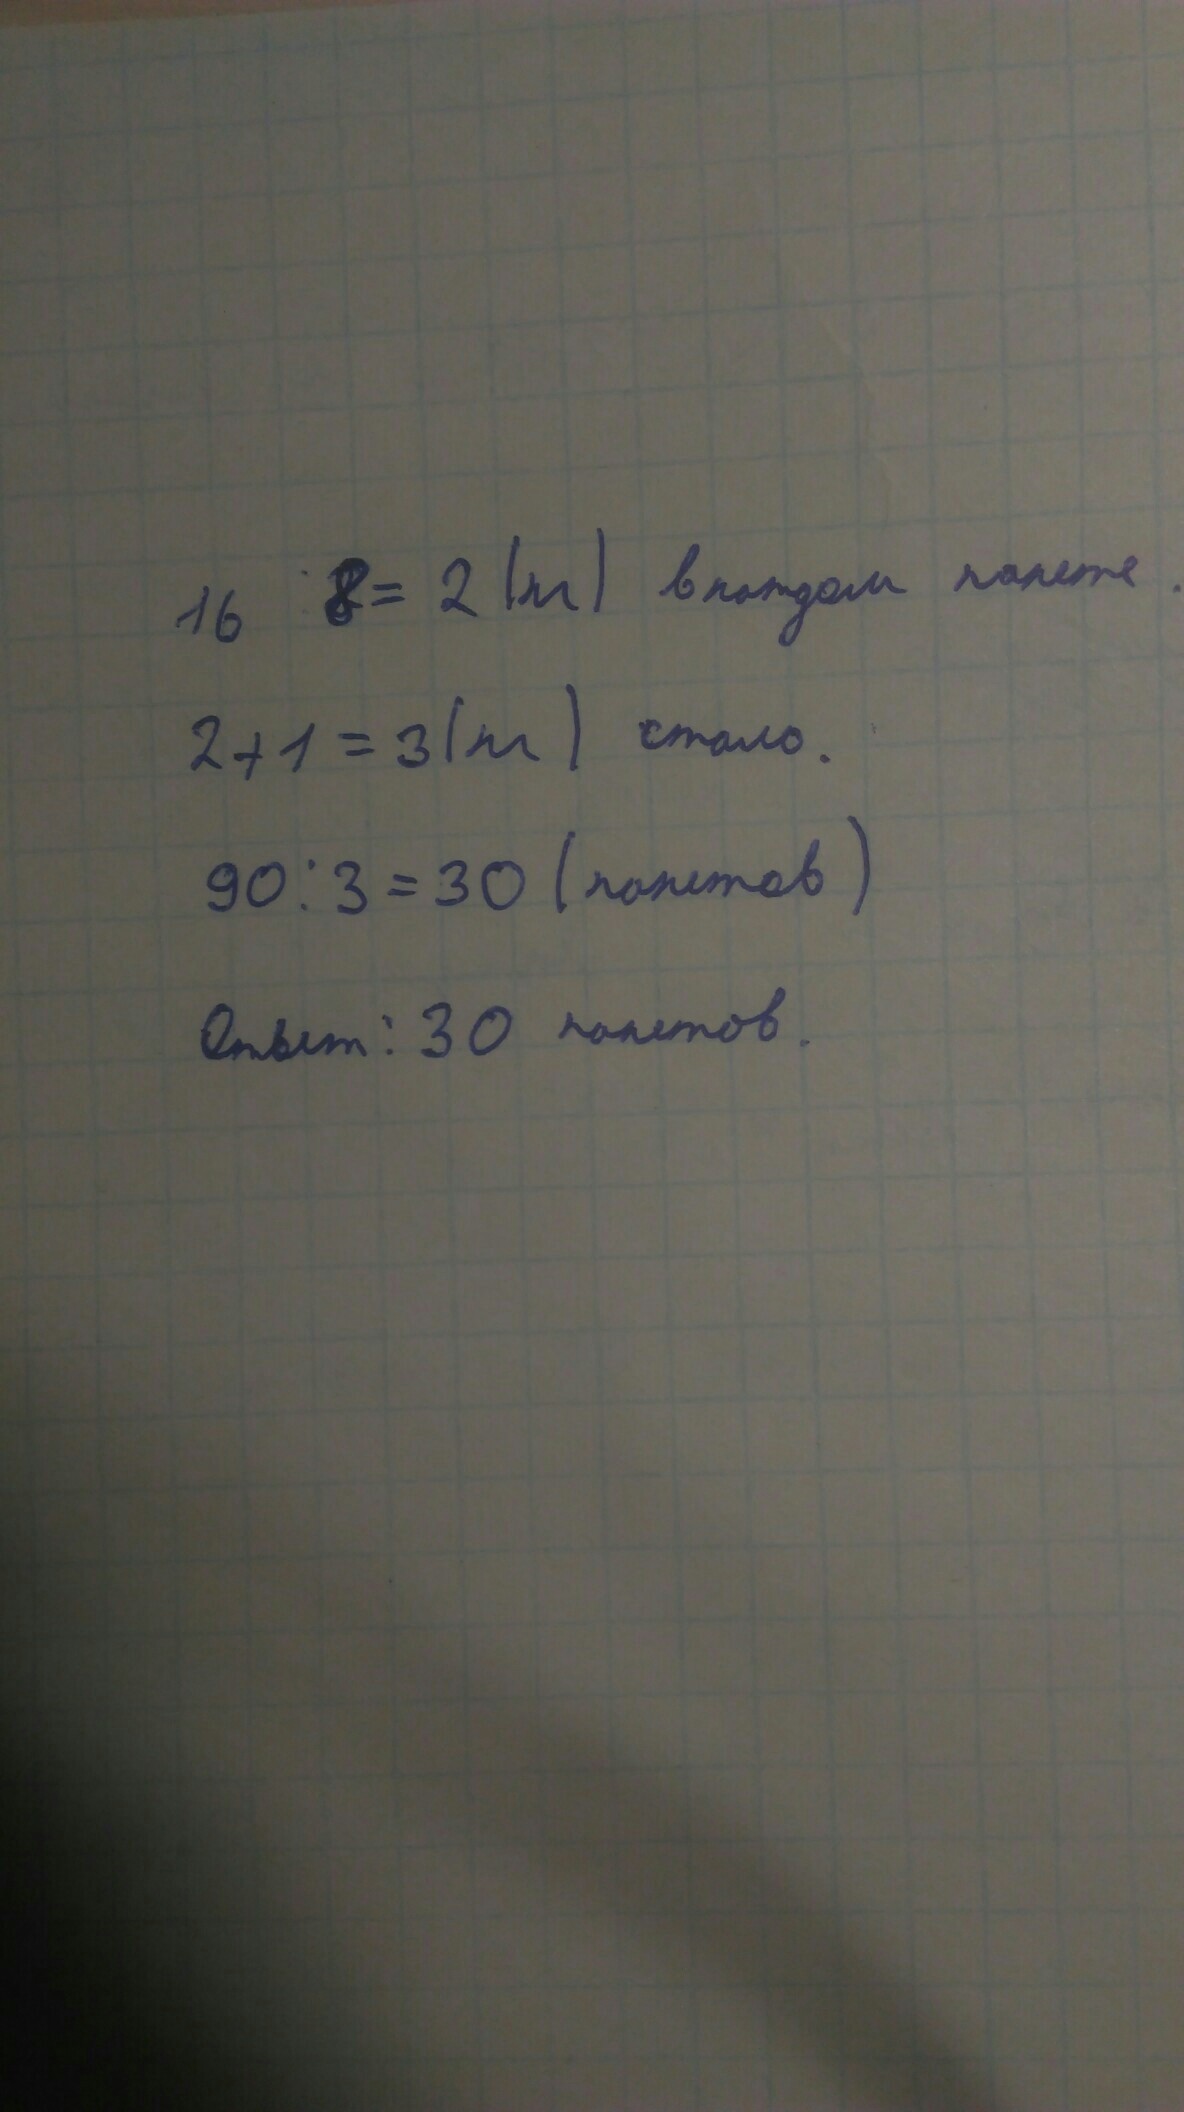 16 : 8 = 2 (кг) в каждом пакете.
2 + 1 = 3 (кг) стало.
90 : 3 = 30 (пакетов)
Ответ: 30 пакетов.